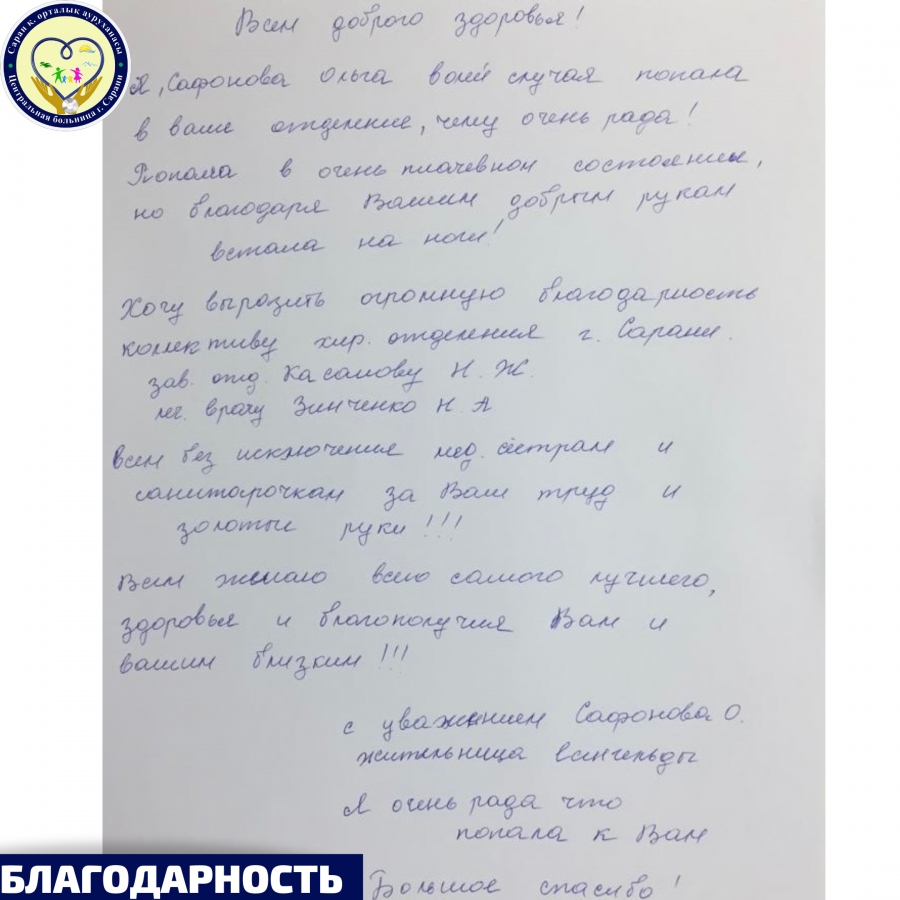 Саран қ. орталық ауруханасы
Центральная больница г. Сарани
Всем доброго здоровья!
Я, Сафонова Ольга волей случая попала
в ваше отделение, чему очень рада!
Попала в очень плачевном состоянии,
но благодаря Вашим добрым рукам
встала на ноги!
Хочу выразить огромную благодарность
коллективу хир. отделения г. Сарани.
зав. отд. Касамову Н. Ж.
леч. врачу Зинченко Н. А
всем без исключения мед. сёстрам и
санитарочкам за Ваш труд и
золотые руки!!!
Всем желаю всего самого лучшего,
здоровья и благополучия Вам и
вашим близким!!!
с уважением Сафонова О.
жительница
Я очень рада что
попала к Вам
Большое спасибо!
БЛАГОДАРНОСТЬ